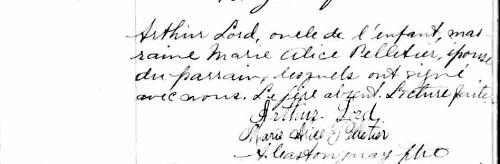 Arthur Lord, oncle de l'enfant, mar-
raine Marie Alice Pelletier, épouse
du parrain, lesquels ont signé
avec nous. Le père absent. Lecture faite.
Arthur Lord
Marie Alice Pelletier
ptre